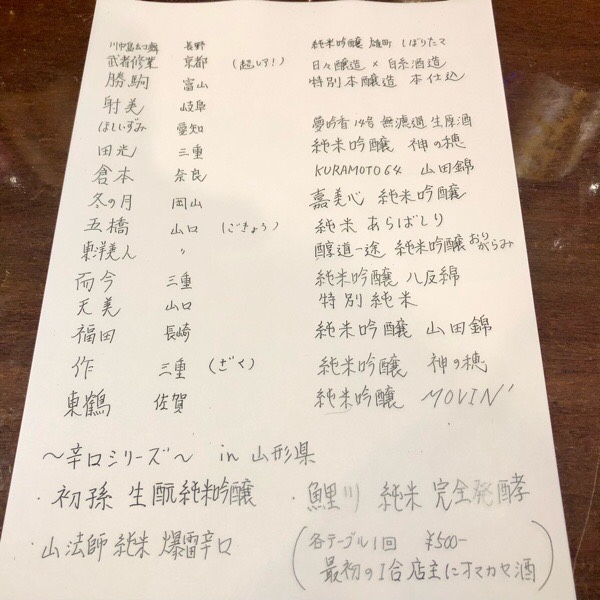 川中島幻舞 長野 純米吟醸 雄町 しぼりたて
武者修業 京都 (超レア!) 日々醸造 × 白糸酒造
勝駒 富山 特別本醸造 本仕込
射美 岐阜
ほしいずみ 愛知 夢吟香14号 無濾過生原酒
田光 三重 純米吟醸 神の穂
倉本 奈良 KURAMOTO64 山田錦
冬の月 岡山 嘉美心 純米吟醸
五橋 山口 (ごきょう) 純米 あらばしり
東洋美人 〃 醇道一途 純米吟醸 おりがらみ
而今 三重 純米吟醸 八反錦
天美 山口 特別純米
福田 長崎 純米吟醸 山田錦
作 三重 (ざく) 純米吟醸 神の穂
東鶴 佐賀 純米吟醸 MOVIN'
〜辛口シリーズ〜 in 山形県
・初孫 生酛純米吟醸 ・鯉川 純米 完全発酵
山法師 純米 爆雷辛口
(各テーブル1回 ¥500-
最初の1合店主にオマカセ酒)